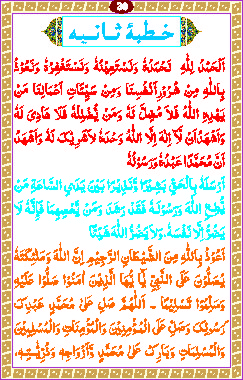 20
خطبۂ ثانیہ
اَلْحَمْدُ لِلّٰهِ نَحْمَدُهٗ وَنَسْتَعِيْنُهٗ وَنَسْتَغْفِرُهٗ وَنَعُوْذُ
بِاللّٰهِ مِنْ شُرُوْرِ اَنْفُسِنَا وَمِنْ سَيِّئَاتِ اَعْمَالِنَا مَنْ
يَّهْدِهِ اللّٰهُ فَلَا مُضِلَّ لَهٗ وَمَنْ يُّضْلِلْهُ فَلَا هَادِيَ لَهٗ
وَاَشْهَدُ اَنْ لَّا اِلٰهَ اِلَّا اللّٰهُ وَحْدَهٗ لَا شَرِيْكَ لَهٗ وَاَشْهَدُ
اَنَّ مُحَمَّدًا عَبْدُهٗ وَرَسُوْلُهٗ
اَرْسَلَهٗ بِالْحَقِّ بَشِيْرًا وَّنَذِيْرًا بَيْنَ يَدَيِ السَّاعَةِ مَنْ
يُّطِعِ اللّٰهَ وَرَسُوْلَهٗ فَقَدْ رَشَدَ وَمَنْ يَّعْصِهِمَا فَاِنَّهٗ لَا
يَضُرُّ اِلَّا نَفْسَهٗ وَلَا يَضُرُّ اللّٰهَ شَيْئًا
اَعُوْذُ بِاللّٰهِ مِنَ الشَّيْطَانِ الرَّجِيْمِ اِنَّ اللّٰهَ وَمَلٰٓئِكَتَهٗ
يُصَلُّوْنَ عَلَى النَّبِيِّ يٰٓاَيُّهَا الَّذِيْنَ اٰمَنُوْا صَلُّوْا عَلَيْهِ
وَسَلِّمُوْا تَسْلِيْمًا اَللّٰهُمَّ صَلِّ عَلٰى مُحَمَّدٍ عَبْدِكَ
وَرَسُوْلِكَ وَصَلِّ عَلَى الْمُؤْمِنِيْنَ وَالْمُؤْمِنَاتِ وَالْمُسْلِمِيْنَ
وَالْمُسْلِمَاتِ وَبَارِكْ عَلٰى مُحَمَّدٍ وَّاَزْوَاجِهٖ وَذُرِّيَّتِهٖ